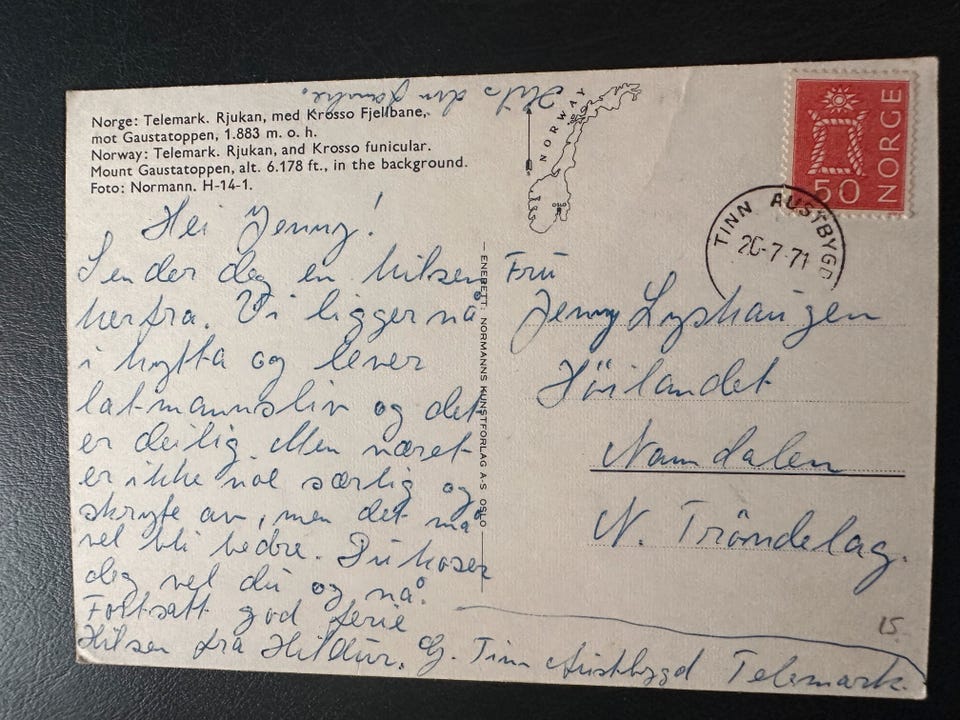 Norge: Telemark. Rjukan, med Krosso Fjellbane,
mot Gaustatoppen, 1.883 m. o. h.
Norway: Telemark. Rjukan, and Krosso funicular.
Mount Gaustatoppen, alt. 6.178 ft., in the background.
Foto: Normann. H-14-1.
Hils din familie.
NORWAY
OSLO
50 NORGE
TINN AUSTBYGD
20-7-71
Hei Jenny!
Sender deg en hilsen
herfra. Vi ligger nå
i hytta og lever
latmannsliv og det
er deilig. Men været
er ikke noe særlig og
skryte av, men det må
vel bli bedre. Du koser
deg vel du og nå.
Fortsatt god ferie
Hilsen fra Hildur. G. Tinn Austbygd Telemark.
ENERETT: NORMANNS KUNSTFORLAG A-S OSLO
Fru
Jenny
Höilandet
Namdalen
N. Tröndelag.
15